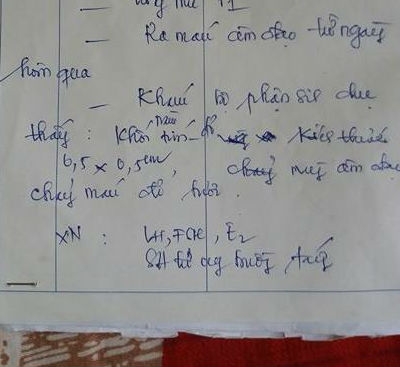 — Ra máu âm đạo từ ngày
hôm qua
— Khám bộ phận sinh dục
thấy : Khối màu tím-đỏ kích thước
0,5 x 0,5cm,
chảy máu đỏ tươi.
XN : LH, FSH, E2
SÂ tử cung buồng trứng